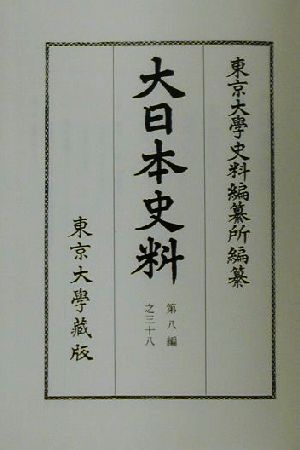 東京大學史料編纂所編纂
大日本史料
第八編
之三十八
東京大學藏版